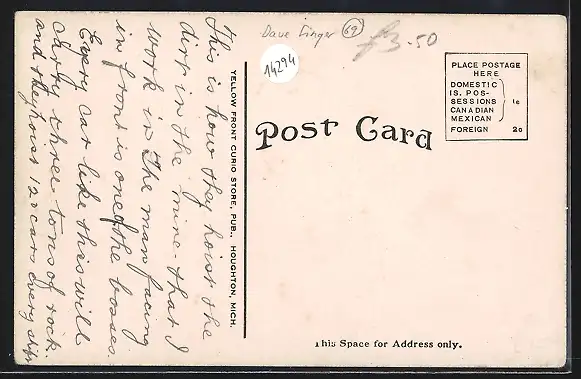 Dave Singer 69
£3.50
14294
PLACE POSTAGE
HERE
DOMESTIC
IS. POS-
SESSIONS
CANADIAN
MEXICAN
1c
FOREIGN 2c
Post Card
YELLOW FRONT CURIO STORE, PUB., HOUGHTON, MICH.
This is how they hoist the
dirt in the mine that I
work in. The man facing
in front is one of the bosses.
Every car like this will
carry three tons of rock.
and they hoist 120 cars every shift
This Space for Address only.